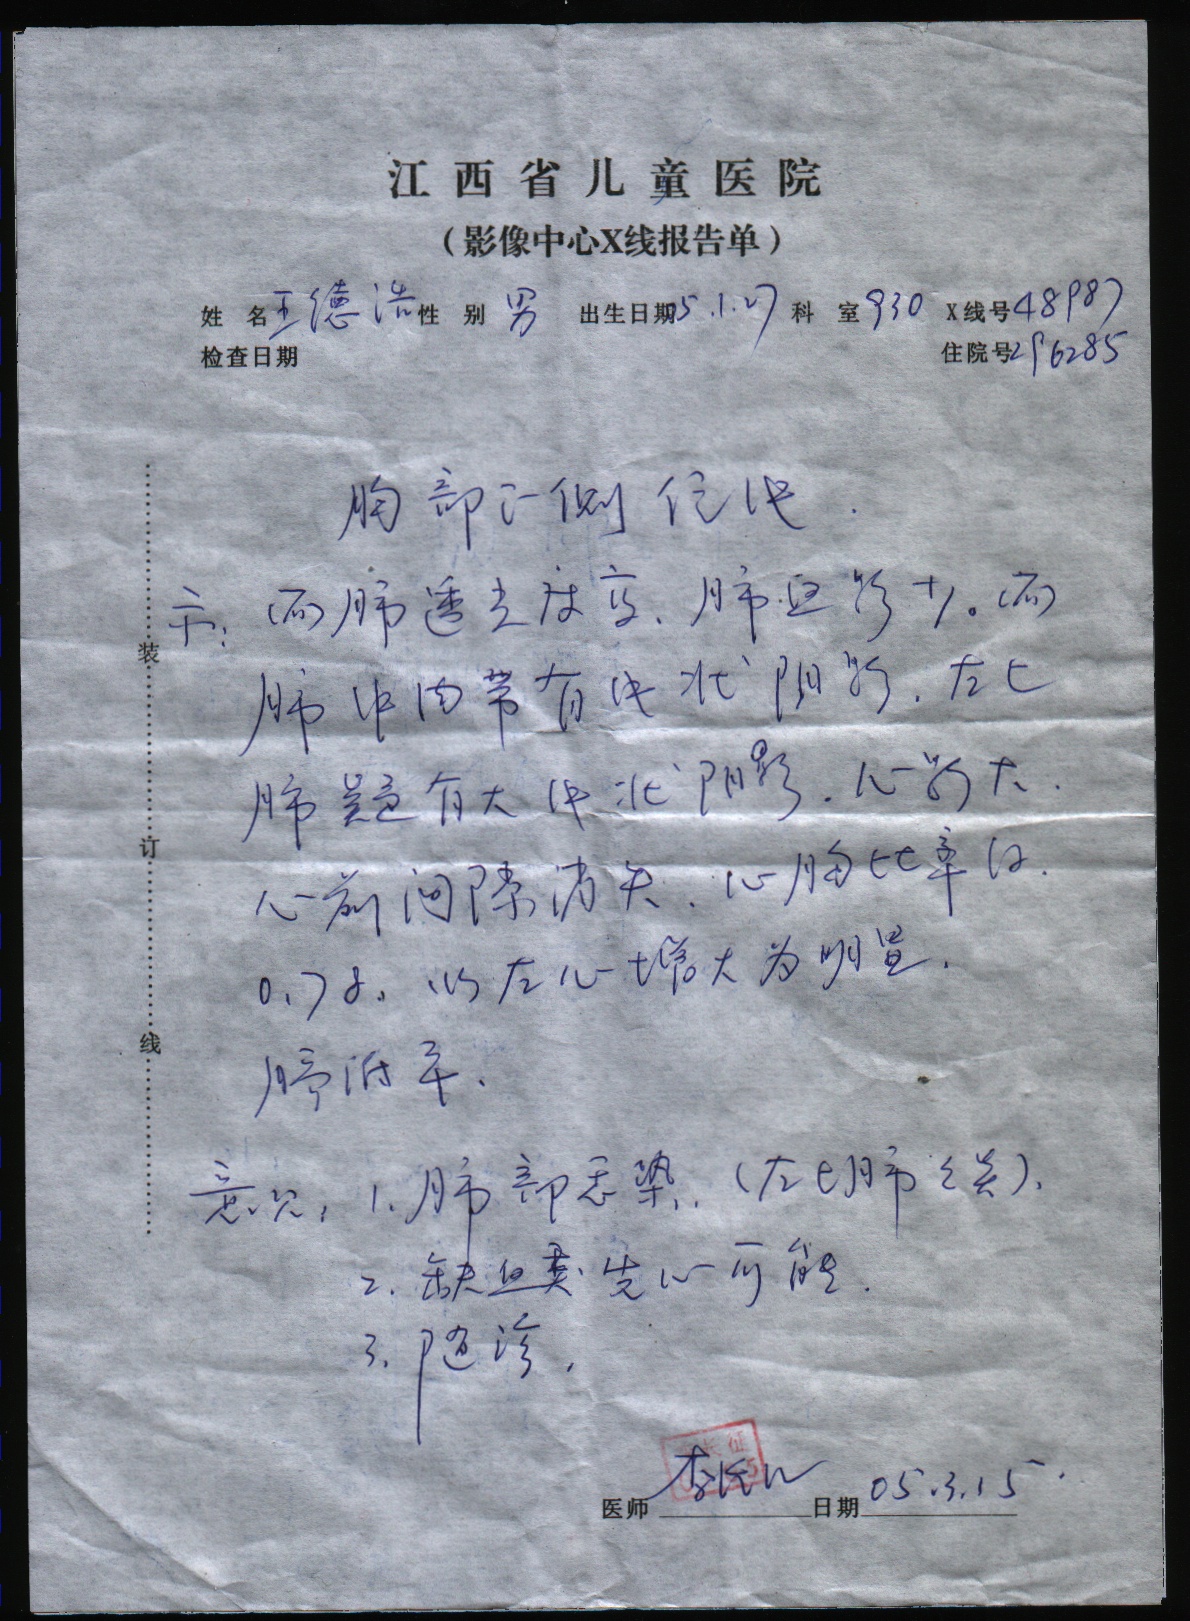 江西省儿童医院
（影像中心X线报告单）
姓 名 王德浩 性 别 男 出生日期 05.1.27 科 室 930 X线号 48987
检查日期 住院号 296285
胸部正侧位片.
示: 两肺透光度高、肺血影少。两
肺中内带有片状阴影、左上
肺疑有大片状阴影、心影大.
心前间隙消失、心胸比率约
0.78、以左心增大为明显.
膈低平.
意见: 1.肺部感染.(左上肺炎).
2.缺血类先心可能.
3.随诊.
医师 日期 05.3.15.
装
订
线